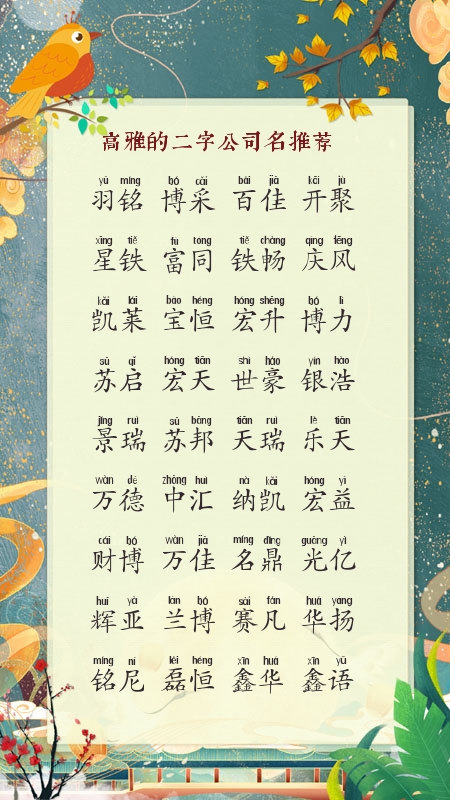 高雅的二字公司名推荐
yǔ míng bó cǎi bǎi jiā kāi jù
羽铭 博采 百佳 开聚
xīng tiě fù tóng tiě chàng qìng fēng
星铁 富同 铁畅 庆风
kǎi lái bǎo héng hóng shēng bó lì
凯莱 宝恒 宏升 博力
sū qǐ hóng tiān shì háo yín hào
苏启 宏天 世豪 银浩
jǐng ruì sū bāng tiān ruì lè tiān
景瑞 苏邦 天瑞 乐天
wàn dé zhōng huì nà kǎi hóng yì
万德 中汇 纳凯 宏益
cái bó wàn jiā míng dǐng guāng yì
财博 万佳 名鼎 光亿
huī yà lán bó sài fán huá yáng
辉亚 兰博 赛凡 华扬
míng ní lěi héng xīn huá xīn yǔ
铭尼 磊恒 鑫华 鑫语